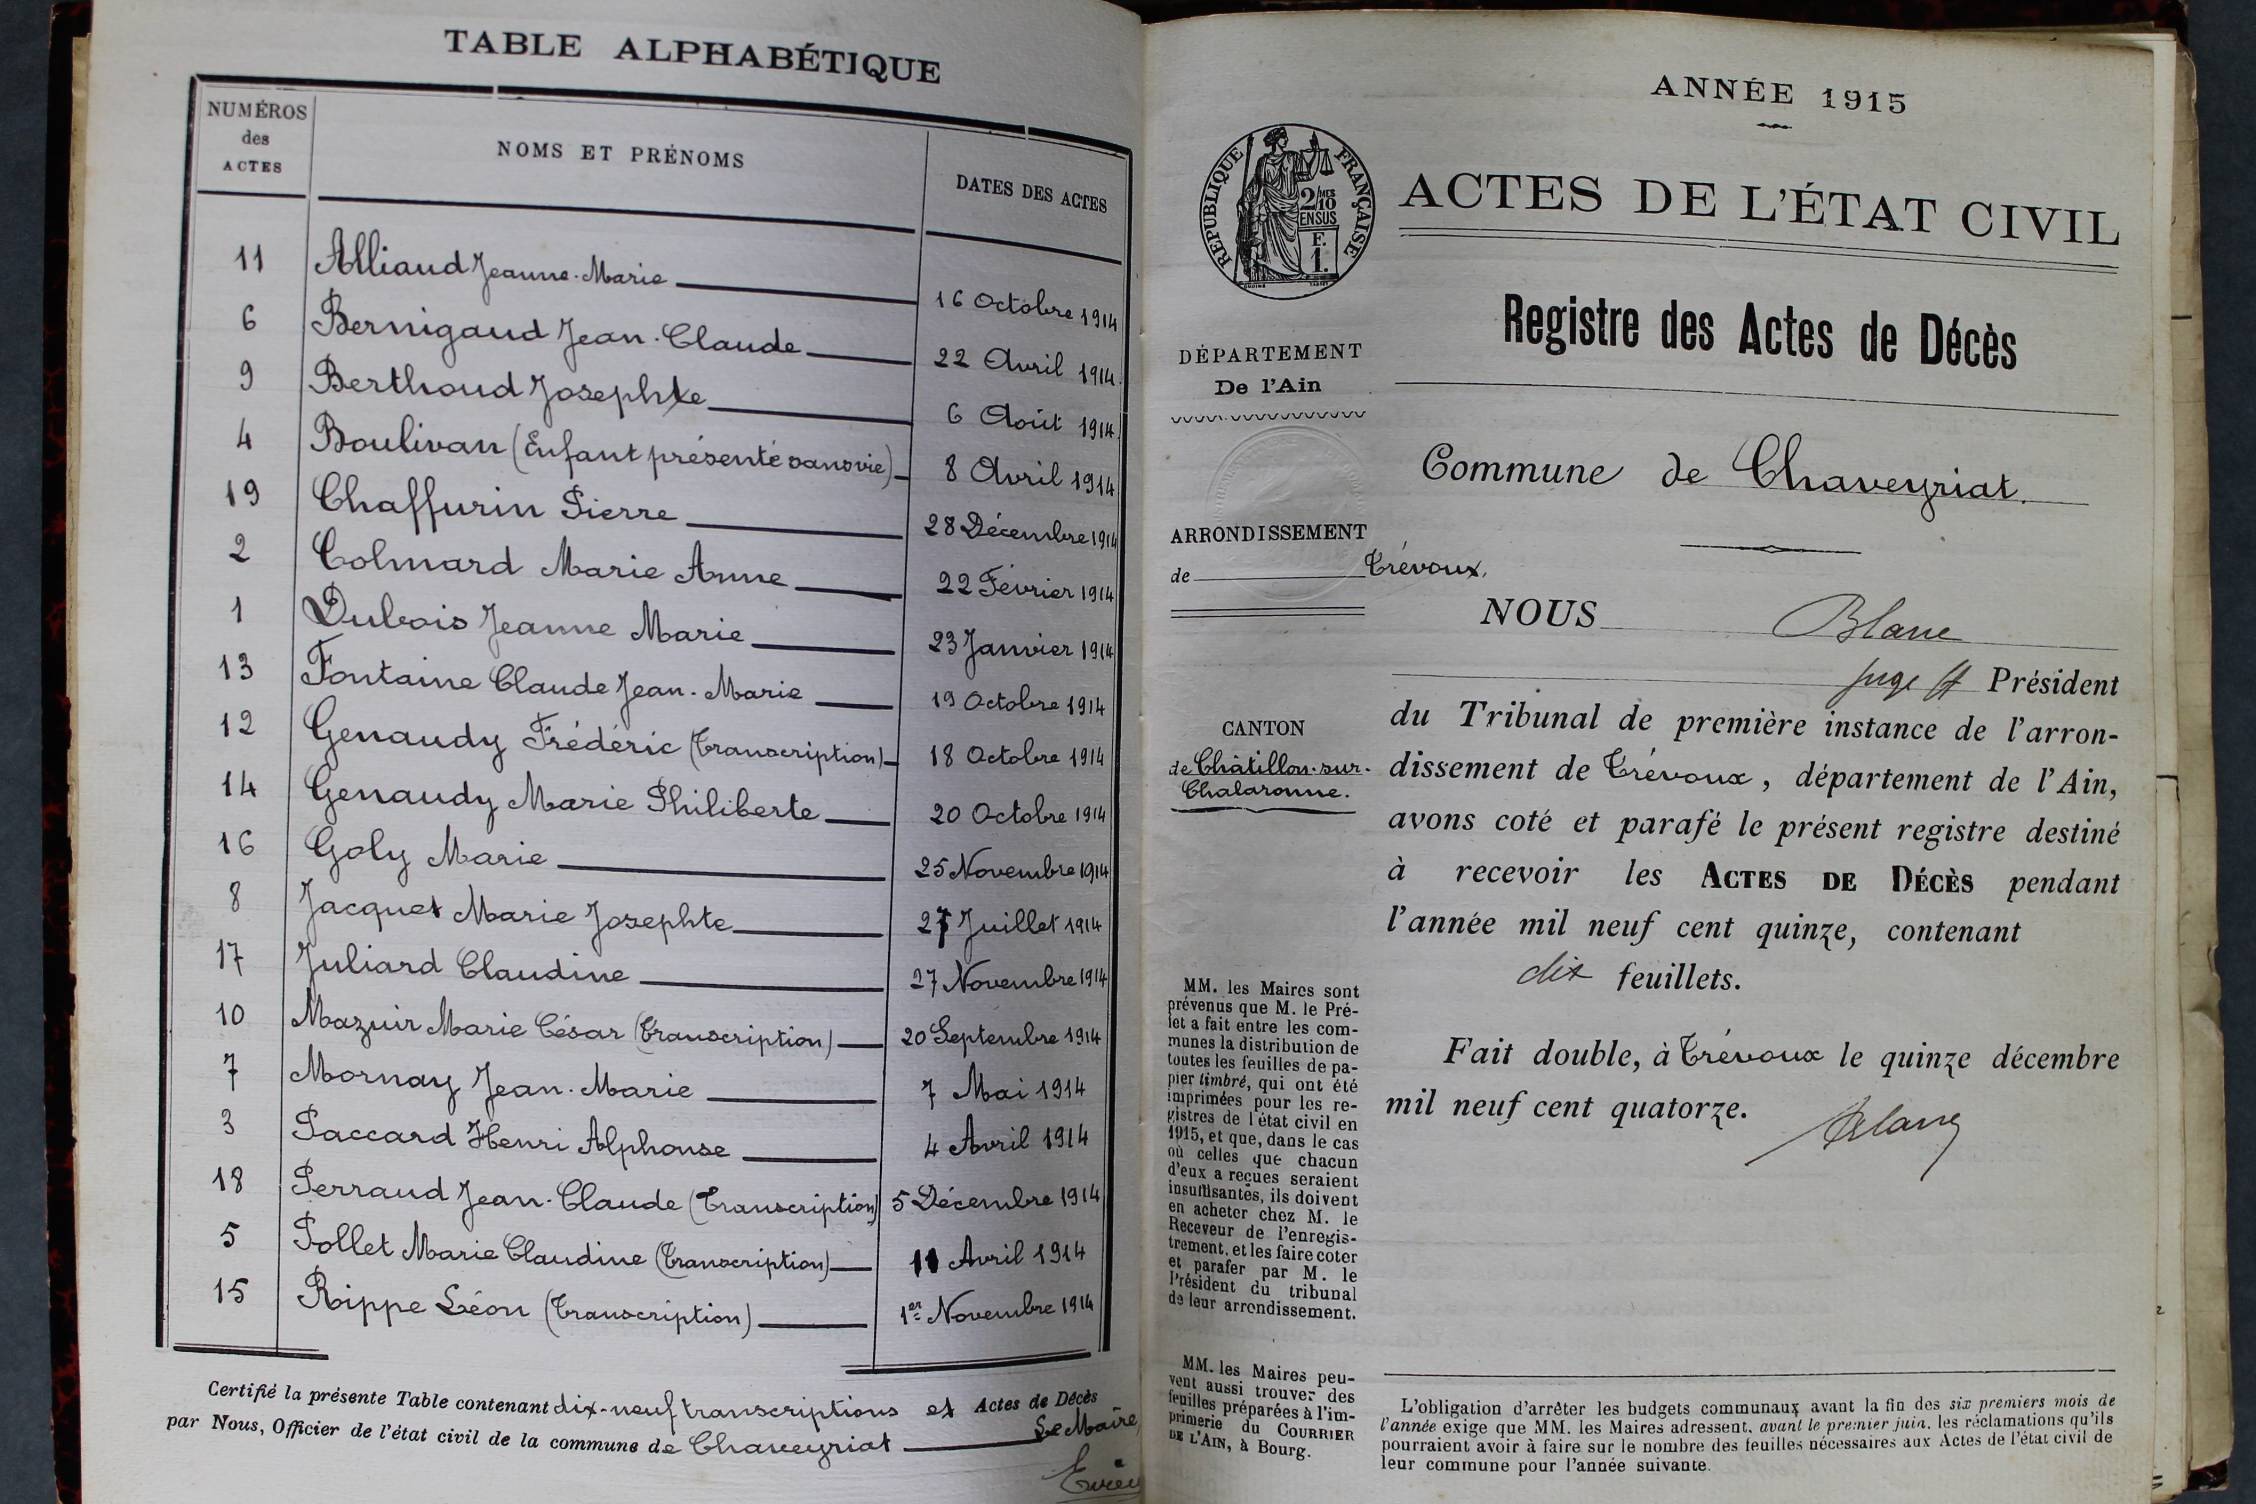 TABLE ALPHABÉTIQUE
NUMÉROS des ACTES NOMS ET PRÉNOMS DATES DES ACTES
11 Alliaud Jeanne-Marie 16 Octobre 1914
6 Bernigaud Jean-Claude 22 Avril 1914
9 Berthoud Josephte 6 Août 1914
4 Boulivan (Enfant présenté sans vie) 8 Avril 1914
19 Chaffurin Pierre 28 Décembre 1914
2 Colmard Marie Anne 22 Février 1914
1 Dubois Jeanne Marie 23 Janvier 1914
13 Fontaine Claude Jean-Marie 19 Octobre 1914
12 Genaudy Frédéric (Transcription) 18 Octobre 1914
14 Genaudy Marie Philiberte 20 Octobre 1914
16 Goly Marie 25 Novembre 1914
8 Jacquet Marie Josephte 27 Juillet 1914
17 Juliard Claudine 27 Novembre 1914
10 Mazuir Marie César (Transcription) 20 Septembre 1914
7 Mornay Jean-Marie 7 Mai 1914
3 Paccard Henri Alphonse 4 Avril 1914
18 Perraud Jean-Claude (Transcription) 5 Décembre 1914
5 Pollet Marie Claudine (Transcription) 11 Avril 1914
15 Rippe Léon (Transcription) 1er Novembre 1914
Certifié la présente Table contenant dix-neuf transcriptions et Actes de Décès
par Nous, Officier de l'état civil de la commune de Chaveyriat
Le Maire,
ANNÉE 1915
RÉPUBLIQUE FRANÇAISE
2/10 MES
EN SUS
F.
1.
ACTES DE L'ÉTAT CIVIL
Registre des Actes de Décès
DÉPARTEMENT
De l'Ain
Commune de Chaveyriat.
ARRONDISSEMENT
de Trévoux.
CANTON
de Châtillon-sur-
Chalaronne.
NOUS Blanc
Juge ff Président
du Tribunal de première instance de l'arron-
dissement de Trévoux, département de l'Ain,
avons coté et parafé le présent registre destiné
à recevoir les ACTES DE DÉCÈS pendant
l'année mil neuf cent quinze, contenant
dix feuillets.
Fait double, à Trévoux le quinze décembre
mil neuf cent quatorze.
Blanc
MM. les Maires sont
prévenus que M. le Pré-
fet a fait entre les com-
munes la distribution de
toutes les feuilles de pa-
pier timbré, qui ont été
imprimées pour les re-
gistres de l'état civil en
1915, et que, dans le cas
où celles que chacun
d'eux a reçues seraient
insuffisantes, ils doivent
en acheter chez M. le
Receveur de l'enregis-
trement, et les faire coter
et parafer par M. le
Président du tribunal
de leur arrondissement.
MM. les Maires peu-
vent aussi trouver des
feuilles préparées à l'im-
primerie du COURRIER
DE L'AIN, à Bourg.
L'obligation d'arrêter les budgets communaux avant la fin des six premiers mois de
l'année exige que MM. les Maires adressent, avant le premier juin, les réclamations qu'ils
pourraient avoir à faire sur le nombre des feuilles nécessaires aux Actes de l'état civil de
leur commune pour l'année suivante.